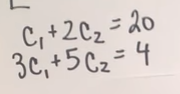 C₁+2C₂=20
3C₁+5C₂=4